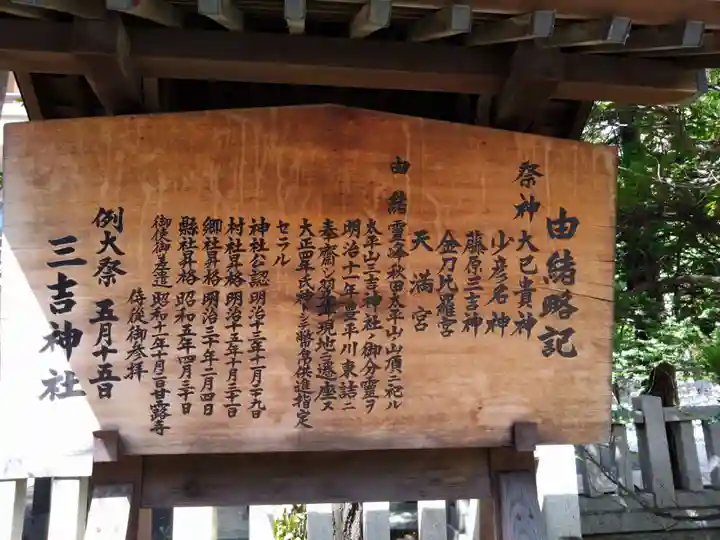 由緒略記
祭神 大己貴神
少彦名神
藤原三吉神
金刀比羅宮
天満宮
由緒 霊峰秋田太平山山頂ニ祀ル
太平山三吉神社ノ御分霊ヲ
明治十一年豊平川東詰ニ
奉斎シ翌年現地ニ遷座ス
大正四年氏神
幣帛供進指定
セラル
神社公認 明治十二年十一月二十九日
村社昇格 明治十五年十月三十一日
郷社昇格 明治三十年二月四日
縣社昇格 昭和五年四月三十日
御使御差遣 昭和十一年十月二日甘露寺
侍從御参拝
例大祭 五月十五日
三吉神社